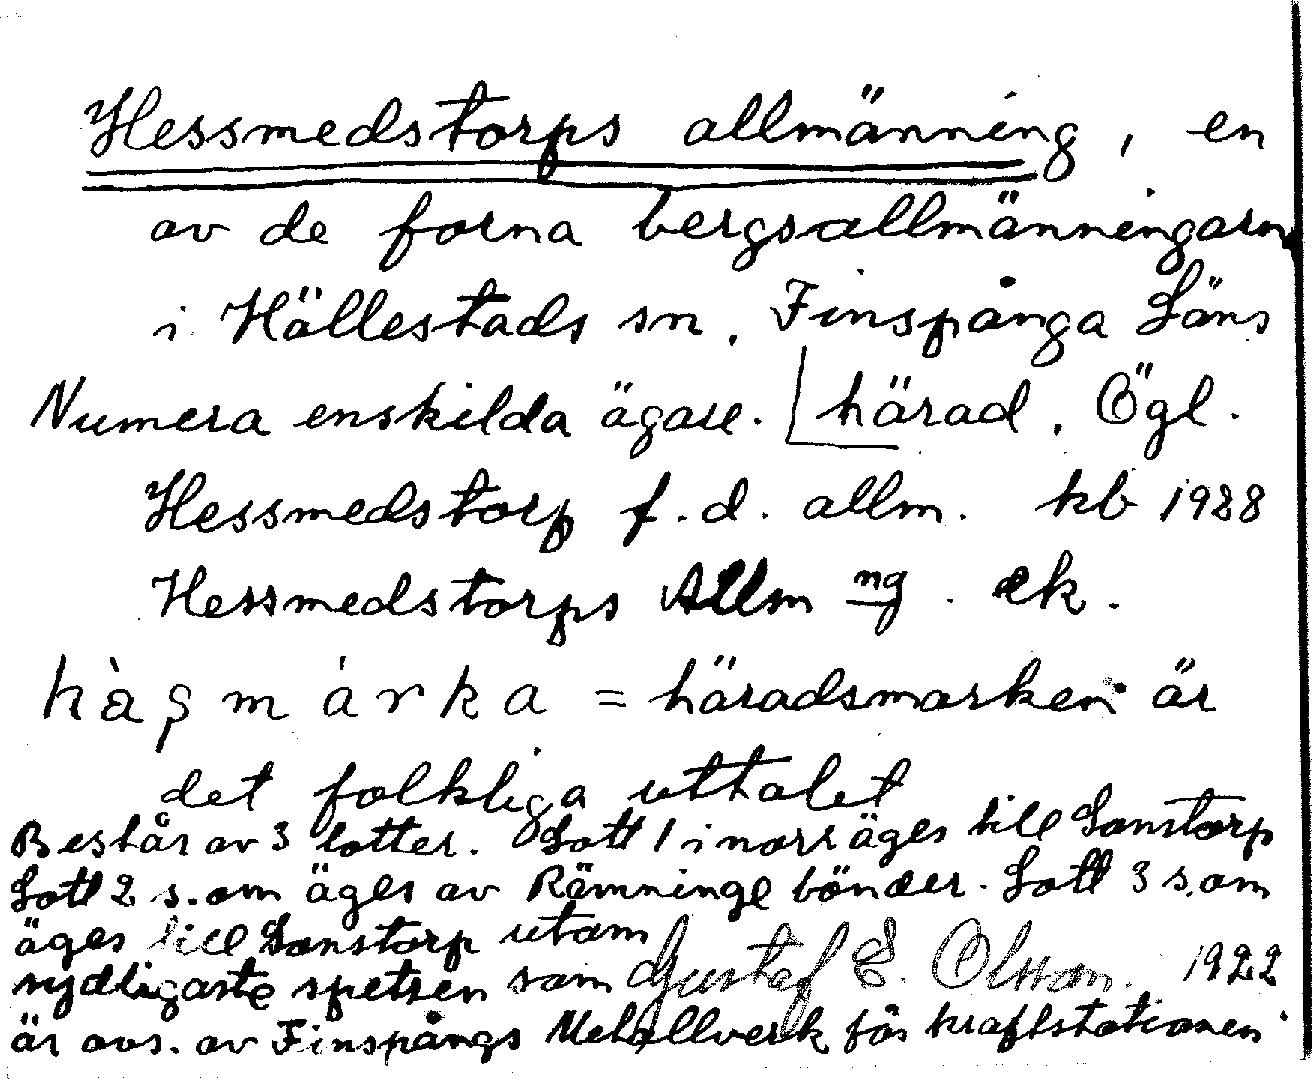 Hessmedstorps allmänning, en
av de forna bergsallmänningarn
i Hällestads sn, Finspånga Läns
Numera enskilda ägare. härad, Ögl.
Hessmedstorp f.d. allm. kb 1928
Hessmedstorps Allm ng. ek.
= häradsmarken är
det folkliga uttalet
Består av 3 lotter. Lott 1 i norr äges till Sonstorp
Lott 2 s. om äges av Rämninge bönder. Lott 3 s. om
äges till Sonstorp utom
sydligaste spetsen som Gustef E. Olsson. 1922
är avs. av Finspångs Metallverk för kraftstationen